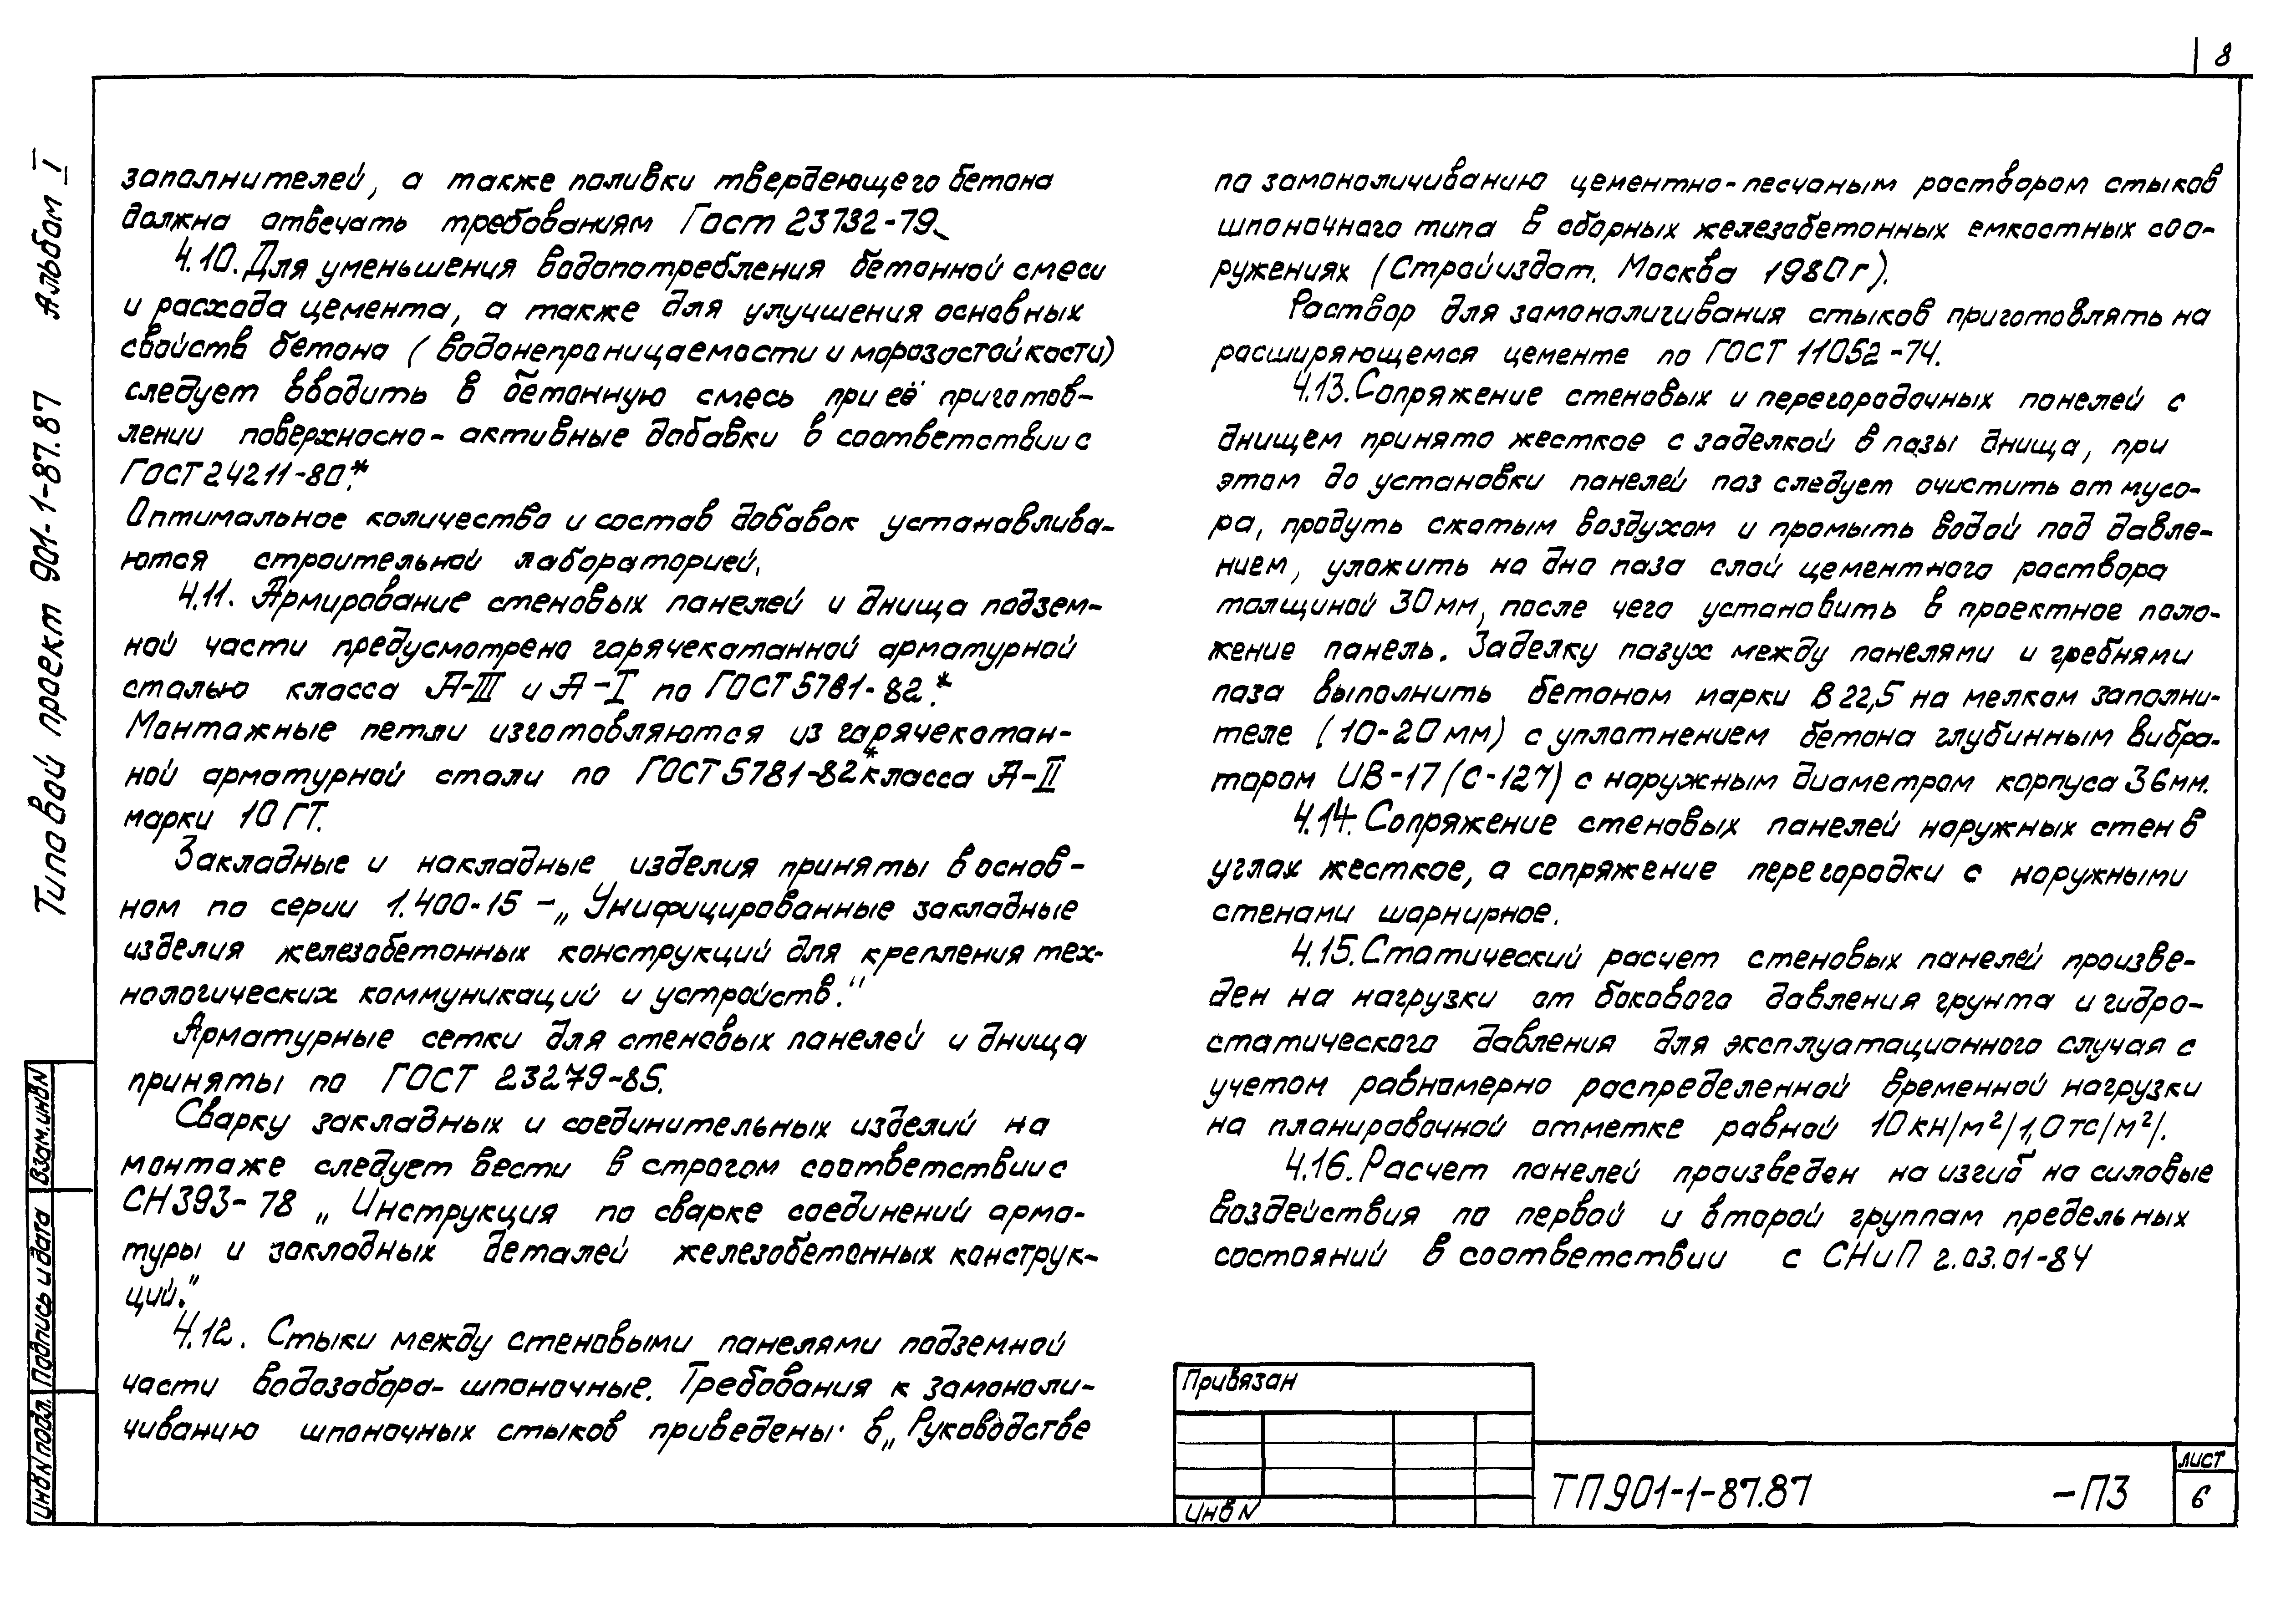 8
Типовой проект 901-1-87.87 Альбом I
заполнителей, а также поливки твердеющего бетона
должна отвечать требованиям Гост 23732-79.
4.10. Для уменьшения водопотребления бетонной смеси
и расхода цемента, а также для улучшения основных
свойств бетона (водонепроницаемости и морозостойкости)
следует вводить в бетонную смесь при её приготов-
лении поверхносно-активные добавки в соответствии с
ГОСТ 24211-80.*
Оптимальное количество и состав добавок устанавлива-
ются строительной лабораторией.
4.11. Армирование стеновых панелей и днища подзем-
ной части предусмотрено горячекатанной арматурной
сталью класса А-III и А-I по ГОСТ 5781-82.*
Монтажные петли изготовляются из горячекатан-
ной арматурной стали по ГОСТ 5781-82* класса А-II
марки 10 ГТ.
Закладные и накладные изделия приняты в основ-
ном по серии 1.400-15 - „Унифицированные закладные
изделия железобетонных конструкций для крепления тех-
нологических коммуникаций и устройств."
Арматурные сетки для стеновых панелей и днища
приняты по ГОСТ 23279-85.
Сварку закладных и соединительных изделий на
монтаже следует вести в строгом соответствии с
СН 393-78 „Инструкция по сварке соединений арма-
туры и закладных деталей железобетонных конструк-
ций."
4.12. Стыки между стеновыми панелями подземной
части водозабора- шпоночные. Требования к замоноли-
чиванию шпоночных стыков приведены в „Руководстве
по замоноличиванию цементно-песчаным раствором стыков
шпоночного типа в сборных железобетонных емкостных соо-
ружениях (Стройиздат. Москва 1980г).
Раствор для замоноличивания стыков приготовлять на
расширяющемся цементе по ГОСТ 11052-74.
4.13. Сопряжение стеновых и перегородочных панелей с
днищем принято жесткое с заделкой в пазы днища, при
этом до установки панелей паз следует очистить от мусо-
ра, продуть сжатым воздухом и промыть водой под давле-
нием, уложить на дно паза слой цементного раствора
толщиной 30 мм, после чего установить в проектное поло-
жение панель. Заделку пазух между панелями и гребнями
паза выполнить бетоном марки В 22,5 на мелком заполни-
теле (10-20 мм) с уплотнением бетона глубинным вибра-
тором ИВ-17 (С-127) с наружным диаметром корпуса 36 мм.
4.14. Сопряжение стеновых панелей наружных стен в
углах жесткое, а сопряжение перегородки с наружными
стенами шарнирное.
4.15. Статический расчет стеновых панелей произве-
ден на нагрузки от бокового давления грунта и гидро-
статического давления для эксплуатационного случая с
учетом равномерно распределенной временной нагрузки
на планировочной отметке равной 10 кн/м²/1,0 тс/м²/.
4.16. Расчет панелей произведен на изгиб на силовые
воздействия по первой и второй группам предельных
состояний в соответствии с СНиП 2.03.01-84
Взам.инв N
Подпись и дата
Инв N подл.
Привязан
Инв N
ТП 901-1-87.87 -ПЗ
лист
6